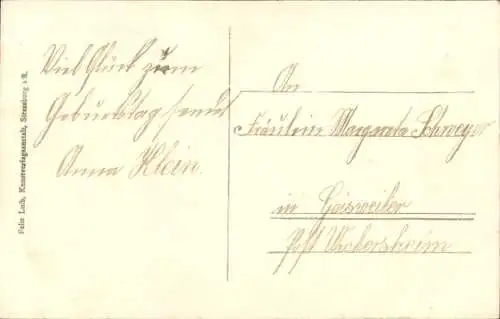 Viel Glück zum
Geburtstag sendet
Anna Klein.
An
Fräulein Margareta Schweyer
in Geisweiler
Post Wickersheim
Felix Luib, Kunstverlagsanstalt, Strassburg i/E.